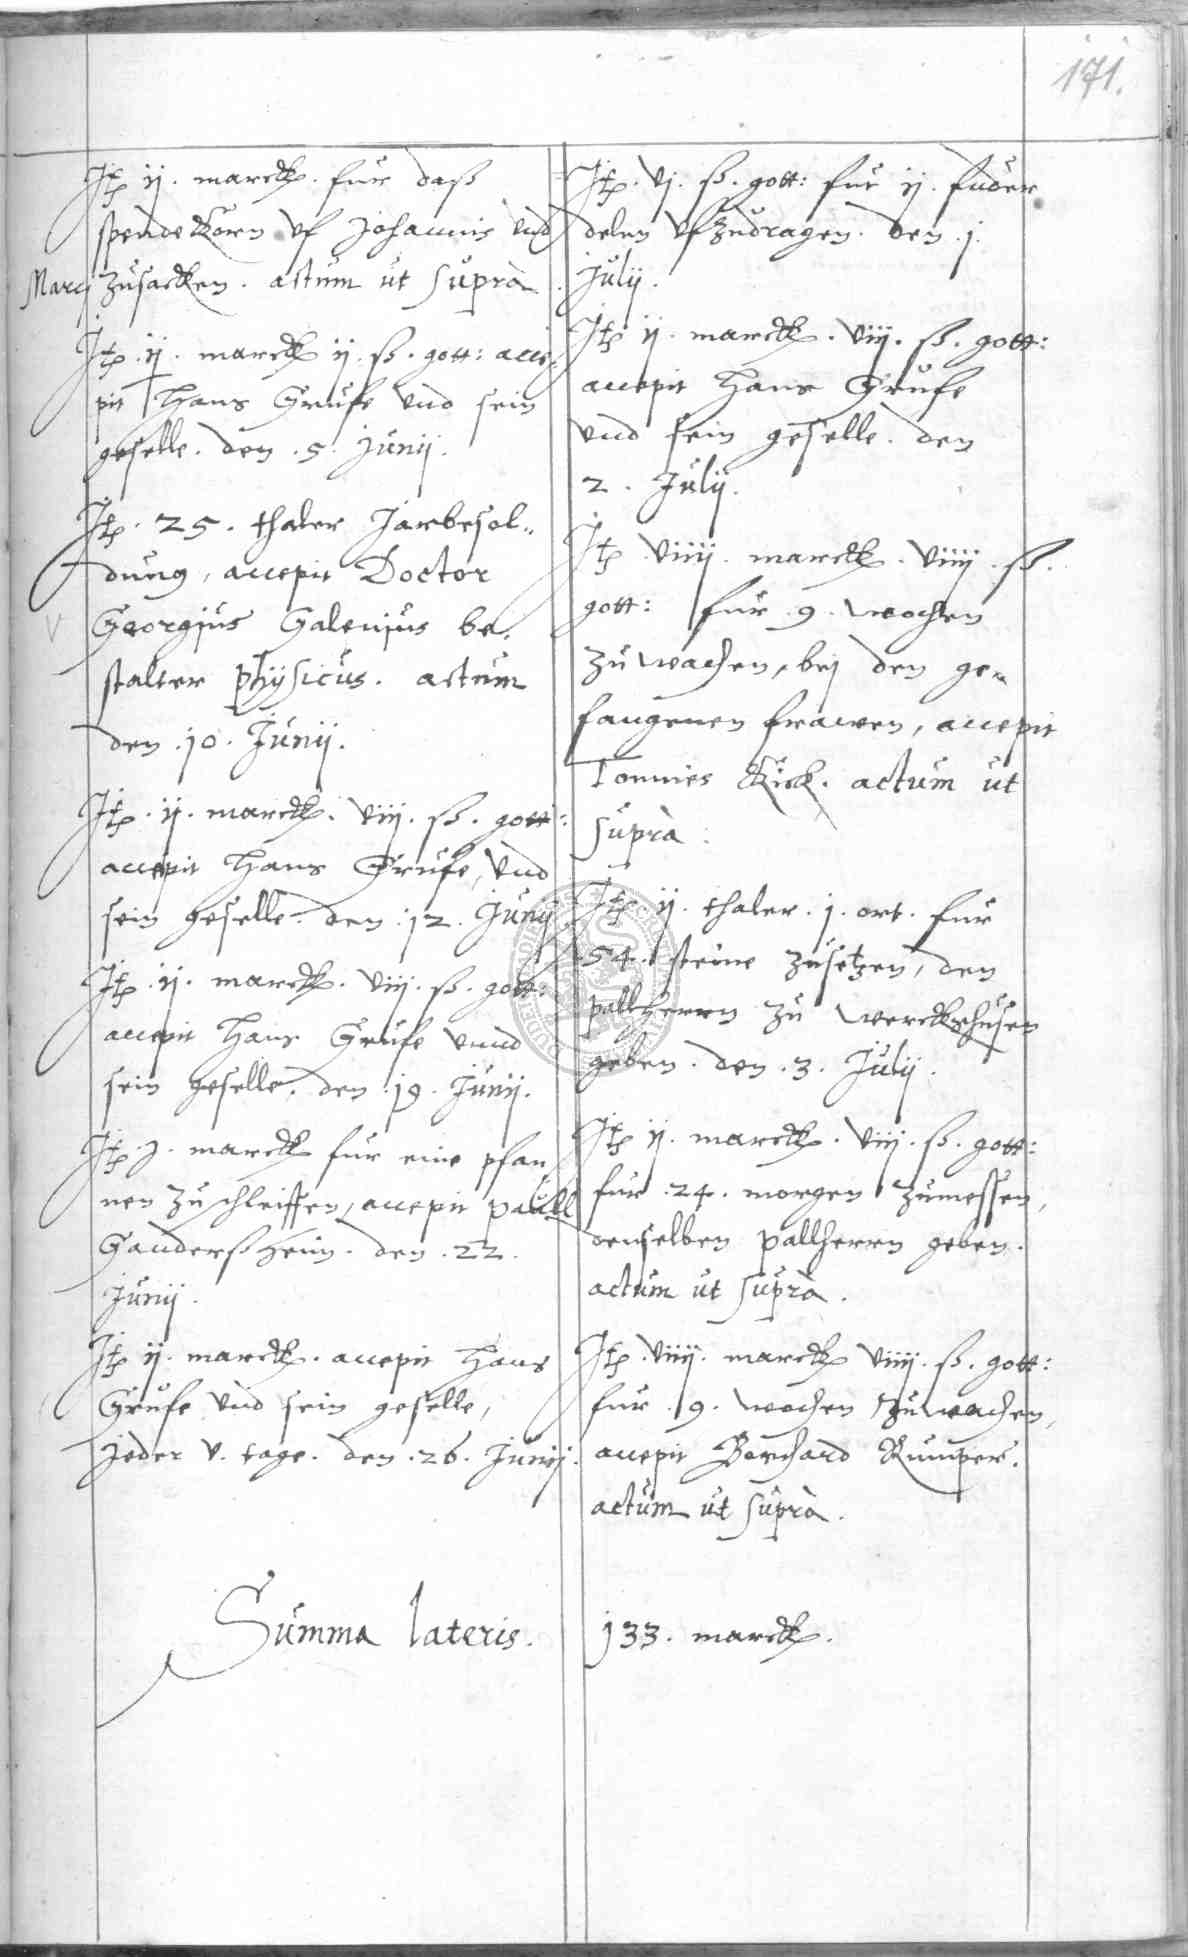 171.
Jtp ij. marck. fur daß
spendekorn vf Johannis vnd
Marcj zusacken. actum ut suprà.
Jtp. ij. marck ij. ß. gott: acce-
pit Hans Grufe vnd sein
geselle. den .5. Junij.
Jtp. 25. thaler Jarbesol„
dung, accepit Doctor
Georgius Galenius be„
stalter physicus. actum
den .10. Junij.
Jtp. ij. marck. viij. ß. gott:
accepit Hans Grufe, vnd
sein geselle. den .12. Junij
Jtp. ij. marck. viij. ß. gott:
accepit Hans Grufe vnnd
sein geselle. den .19. Junij.
Jtp. j. marck fur eine pfan
nen zuschleiffen, accepit paull
Ganderßheim. den .22.
Junij.
Jtp ij. marck. accepit Hans
Grufe vnd sein geselle,
jeder v. tage. den .26. Junij.
Jtp. vj. ß. gott: fur ij. fuder
delen vfzudragen. den .j.
Julij.
Jtp ij. marck. viij. ß. gott:
accepit Hans Grufe
vnd sein geselle. den
2. Julij.
Jtp viiij. marck. viiij. ß.
gott: fur .9. wochen
zuwachen, bej den ge„
fangenen frawen, accepit
Tonnies Kick. actum ut
suprà.
Jtp. ij. thaler. j. ort. fur
54. steine zusetzen, den
pallherrn zu werckshusen
geben. den .3. Julij.
Jtp ij. marck. viij. ß. gott:
fur .24. morgen zumessen,
denselben pallherrn geben.
actum ut suprà.
Jtp .viiij. marck viiij. ß. gott:
fur .9. wochen zuwachen,
accepit Borchard Rumper.
actum ut suprà.
Summa lateris. 133. marck.